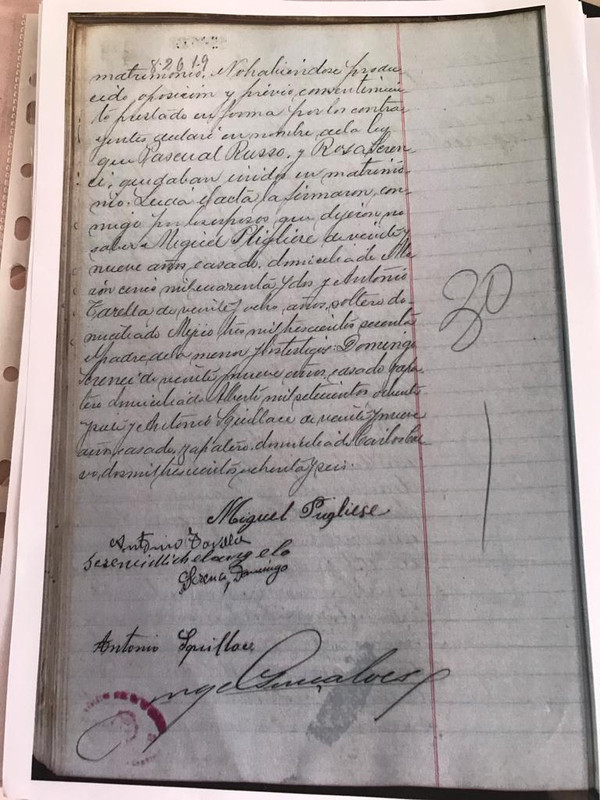 8.2619
matrimonio. No habiendose produ
cido oposición y prévio consentimien
to prestado en forma por los contra
yentes declaré en nombre de la ley
que Pascual Russo, y Rosa Seren
ci, quedaban unidos en matrimo
nio. Leida el acta la firmaron, con
migo por los esposos que dijeron no
saber Miguel Pugliese de veinte y
nueve años casado, domiciliado
cinco mil cuarenta y dos y Antonio
Tarella de veinte y años, soltero do
miciliado Méjico tres mil trescientos sesenta
el padre de la menor y los testigos: Domingo
Serenci de veinte y nueve años, casado zapa
tero domiciliado Alberti mil setecientos ochenta
y Antonio Squillace de veinte y nueve
años, casado, zapatero, domiciliado Carlos Cal
vo, dos mil trescientos ochenta y seis.
30
Miguel Pugliese
Antonio Tarella
Serenci Michelangelo
Serenci, Domingo
Antonio Squillace